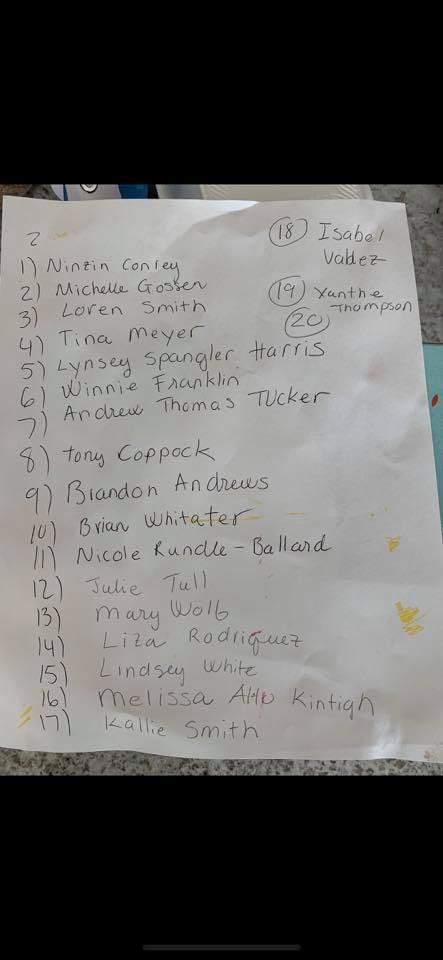 2
1) Ninzin Conley
2) Michelle Gossen
3) Loren Smith
4) Tina Meyer
5) Lynsey Spangler Harris
6) Winnie Franklin
7) Andrew Thomas Tucker
8) tony Coppock
9) Brandon Andrews
10) Brian Whitater
11) Nicole Rundle-Ballard
12) Julie Tull
13) Mary Wolb
14) Liza Rodriquez
15) Lindsey White
16) Melissa Kintigh
17) Kallie Smith
18 Isabel
Valdez
19 Xanthe
Thompson
20